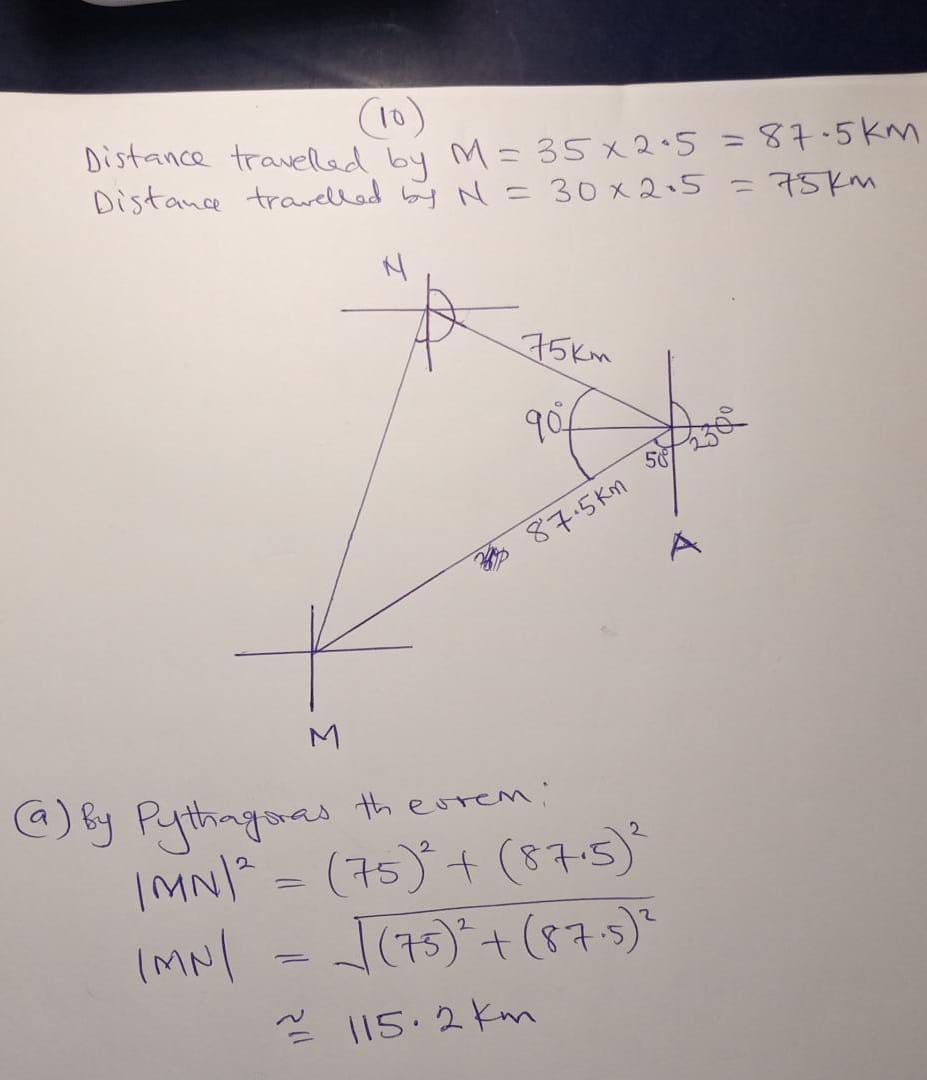 (10)
Distance travelled by M = 35 x 2.5 = 87.5km
Distance travelled by N = 30 x 2.5 = 75km
N
75km
90°
230°
50°
87.5km
A
M
(a) By Pythagoras theorem:
|MN|² = (75)² + (87.5)²
|MN| = √(75)² + (87.5)²
≅ 115.2 km